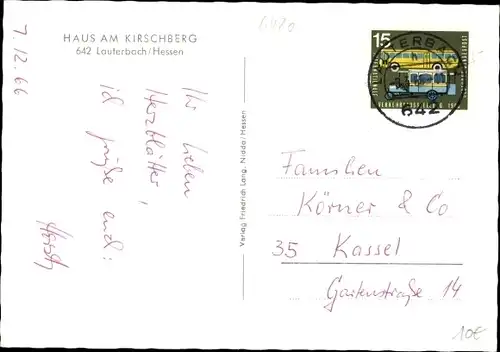 HAUS AM KIRSCHBERG
642 Lauterbach/Hessen
7.12.66
Ihr lieben
Herzblätter,
ich grüße euch:
Horst
Verlag Friedrich Lang, Nidda/Hessen
15
LAUTERBACH
642
Familien
Körner & Co
35 Kassel
Gartenstraße 14
10€